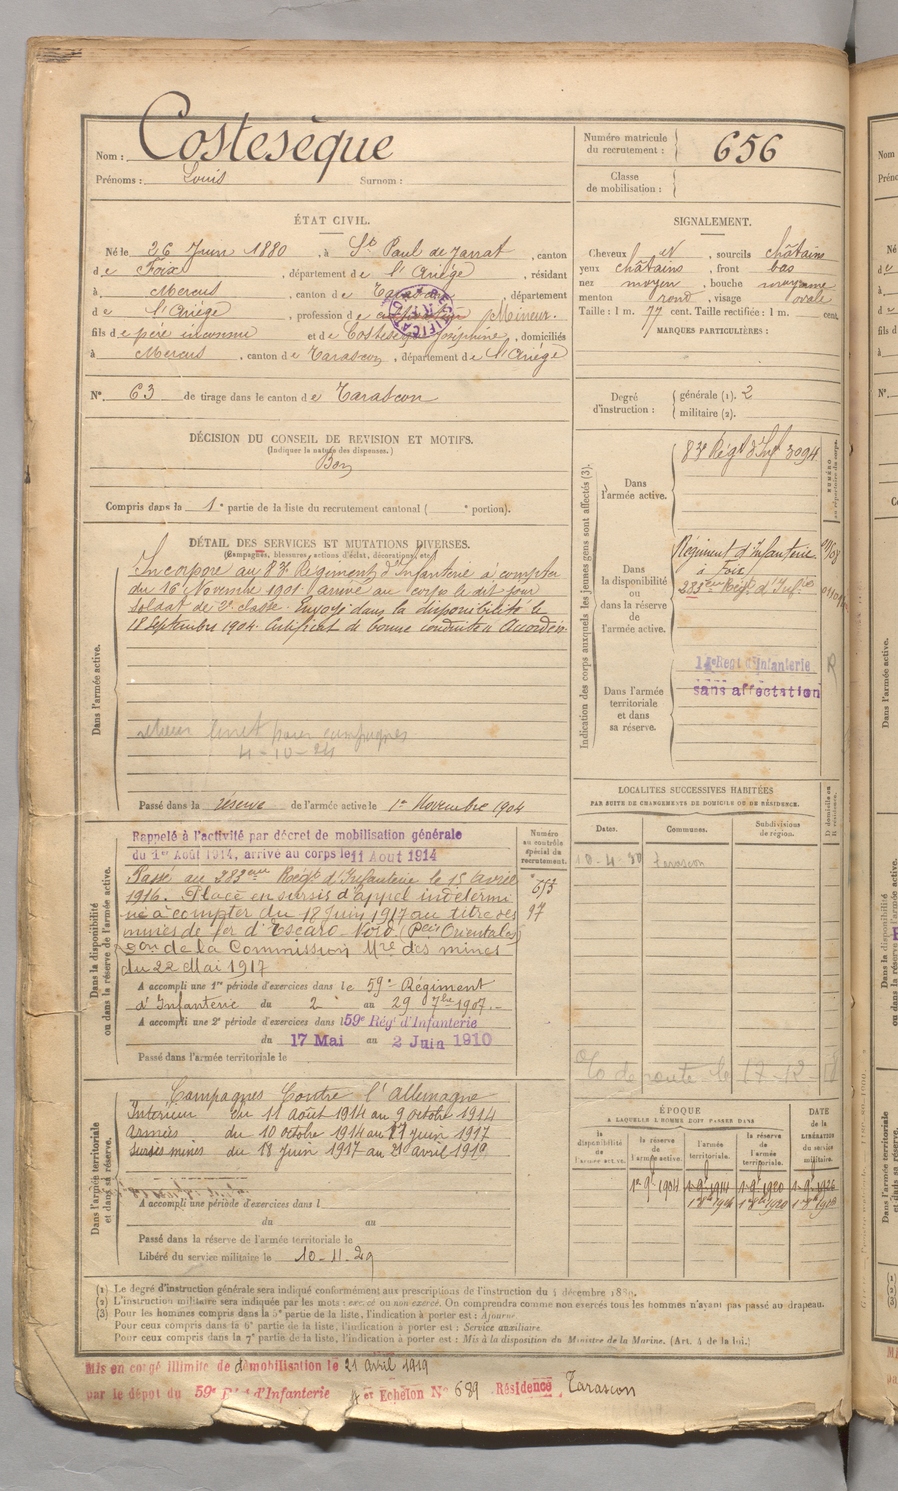 Nom : Costesèque
Prénoms : Louis Surnom :
Numéro matricule du recrutement : 656
Classe de mobilisation :
ÉTAT CIVIL.
Né le 26 Juin 1880, à St Paul de Jarrat, canton
de Foix, département de l'Ariège, résidant
à Mercus, canton de Tarascon, département
de l'Ariège, profession de Mineur.
fils de père inconnu et de Costesèque Joséphine, domiciliés
à Mercus, canton de Tarascon, département de l'Ariège
N° 63 de tirage dans le canton de Tarascon
SIGNALEMENT.
Cheveux N, sourcils châtains
yeux châtains, front bas
nez moyen, bouche moyenne
menton rond, visage ovale
Taille : 1 m. 77 cent. Taille rectifiée : 1 m. cent.
MARQUES PARTICULIÈRES :
Degré d'instruction : générale (1). 2
militaire (2).
DÉCISION DU CONSEIL DE REVISION ET MOTIFS.
(Indiquer la nature des dispenses.)
Bon
Compris dans la 1e partie de la liste du recrutement cantonal ( e portion).
DÉTAIL DES SERVICES ET MUTATIONS DIVERSES.
(Campagnes, blessures, actions d'éclat, décorations, etc.)
Dans l'armée active.
Incorporé au 83e Régiment d'Infanterie à compter
du 16 Novembre 1901. arrivé au corps le dit jour
soldat de 2e classe. Envoyé dans la disponibilité le
18 Septembre 1904. Certificat de bonne conduite « Accordé ».
4-10-24
Passé dans la réserve de l'armée active le 1er Novembre 1904
Indication des corps auxquels les jeunes gens sont affectés (3).
Dans l'armée active.
83e Régt d'Inf 3094
Dans la disponibilité ou dans la réserve de l'armée active.
Régiment d'Infanterie
à Foix
283eme Régt d'Infie
Dans l'armée territoriale et dans sa réserve.
Regt d'Infanterie
sans affectation
LOCALITÉS SUCCESSIVES HABITÉES
PAR SUITE DE CHANGEMENTS DE DOMICILE OU DE RÉSIDENCE.
Dates. Communes. Subdivisions de région.
10-4-20 Tarascon
Dans la disponibilité ou dans la réserve de l'armée active.
Numéro au contrôle spécial du recrutement.
Rappelé à l'activité par décret de mobilisation générale
du 1er Août 1914, arrivé au corps le 11 Aout 1914
Passé au 283eme Régt d'Infanterie le 15 Avril
1916. Placé en sursis d'appel indétermi
né à compter du 18 Juin 1917 au titre des
mines de fer d'Escaro-Nord (Pées Orientales)
don de la Commission Mre des mines
du 22 Mai 1917
A accompli une 1re période d'exercices dans le 59e Régiment
d'Infanterie du 2 au 29 7bre 1907.
A accompli une 2e période d'exercices dans l 59e Régt d'Infanterie
du 17 Mai au 2 Juin 1910
Passé dans l'armée territoriale le
Dans l'armée territoriale et dans sa réserve.
Campagnes Contre l'Allemagne
Intérieur du 11 août 1914 au 9 octobre 1914
Armées du 10 octobre 1914 au 17 juin 1917
sursis mines du 18 juin 1917 au 21 avril 1919
A accompli une période d'exercices dans l
du au
Passé dans la réserve de l'armée territoriale le
Libéré du service militaire le 10-11-29
ÉPOQUE
A LAQUELLE L'HOMME DOIT PASSER DANS
la disponibilité de l'armée active. la réserve de l'armée active. l'armée territoriale. la réserve de l'armée territoriale. DATE DE LA LIBÉRATION du service militaire.
(1) Le degré d'instruction générale sera indiqué conformément aux prescriptions de l'instruction du 4 décembre 1889.
(2) L'instruction militaire sera indiquée par les mots : exercé ou non exercé. On comprendra comme non exercés tous les hommes n'ayant pas passé au drapeau.
(3) Pour les hommes compris dans la 5e partie de la liste, l'indication à porter est : Ajourné
Pour ceux compris dans la 6e partie de la liste, l'indication à porter est : Service auxiliaire.
Pour ceux compris dans la 7e partie de la liste, l'indication à porter est : Mis à la disposition du Ministre de la Marine. (Art. 4 de la loi.)
Mis en congé illimité de démobilisation le 21 avril 1919
par le dépot du 59e d'Infanterie et Echelon N° 689 Résidence Tarascon